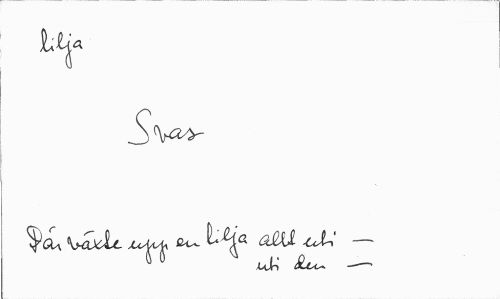 lilja
Svas
Där växte upp en lilja allt uti —
uti den —